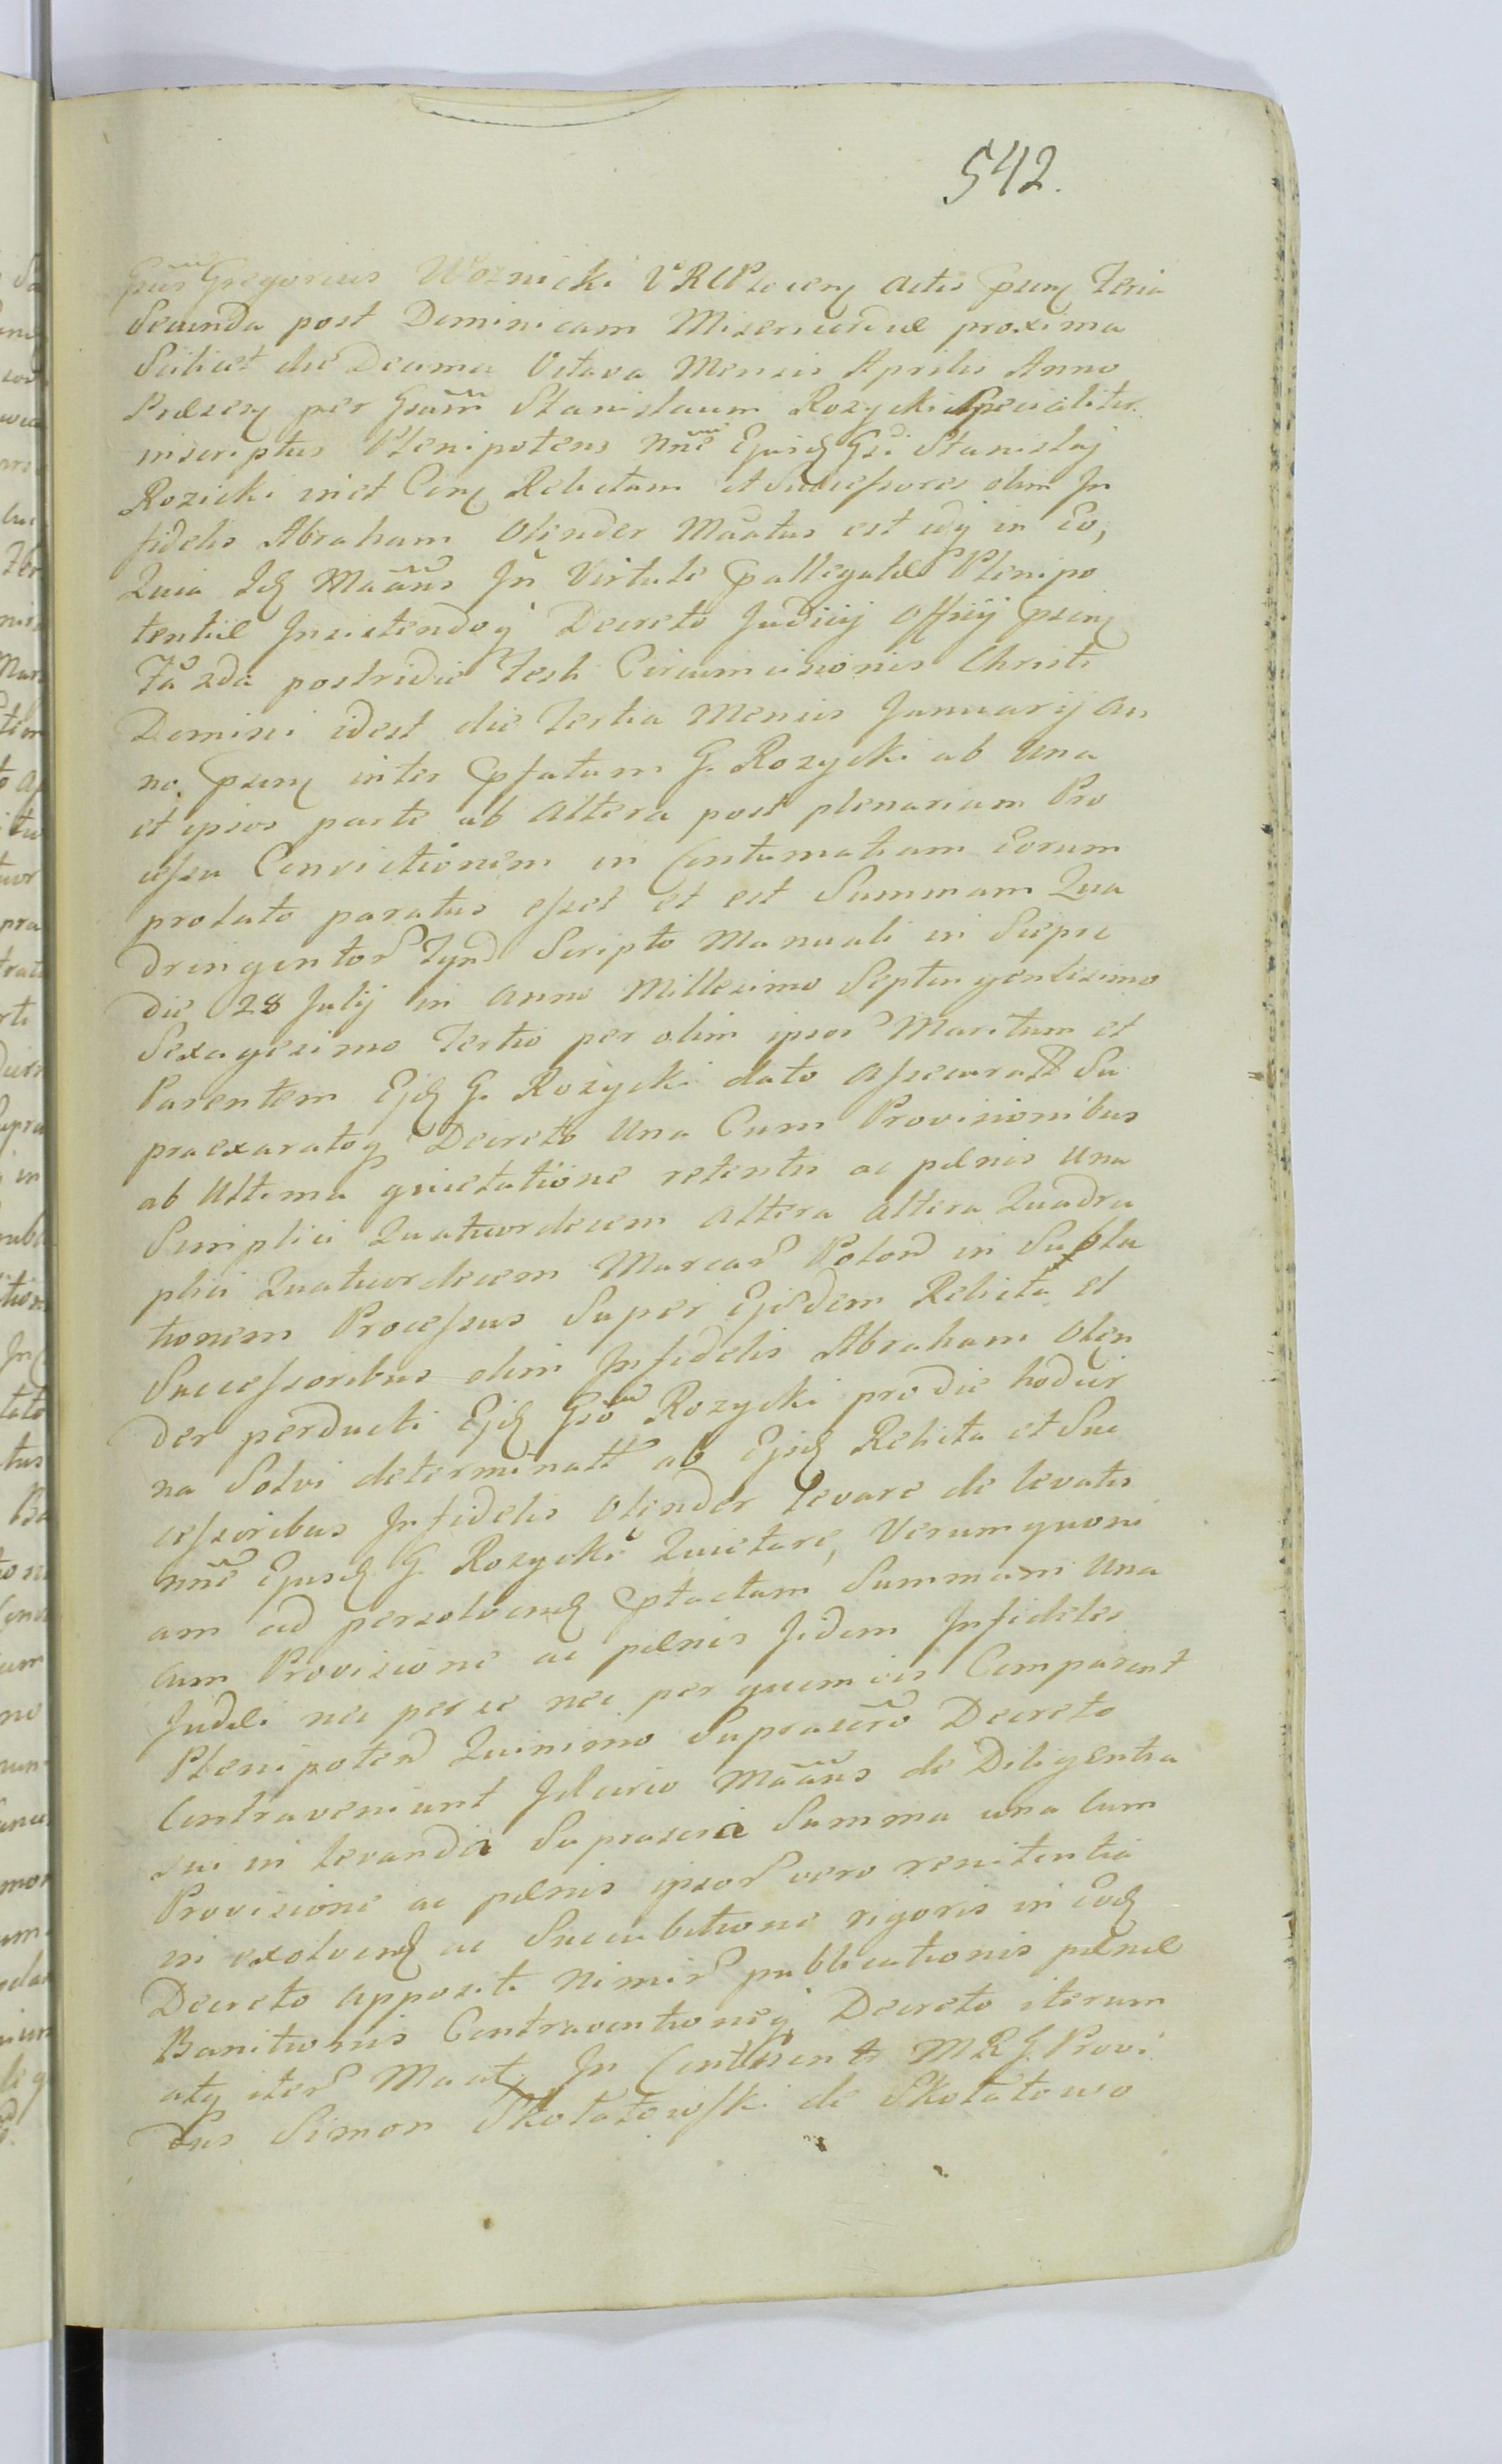 542.
Gnus Gregorius Woznicki VRCPlocen Actis psen Feria
Secunda post Dominicam Misericordiæ proxima
Scilicet die Decima Octava Mensis Aprilis Anno
Præsen per Gsum Stanislaum Rozycki Specialiter
inscriptus Plenipotens nne Ejusd Gsi Stanislaj
Rozicki met Con Relictam et Successores olim In
fidelis Abraham Olender Maatus est idq in Eo,
Quia Id Maans In Virtute pallegatæ Plenipo
tentiæ Insistendoq Decreto Judicij Officij psen
Fa 2da postridie Festi Circumcisionis Christi
Domini idest die Tertia Mensis Januarij An
no psen inter pfatum G. Rozycki ab Una
et ipsos parte ab Altera post plenariam Pro
cessu Convictionem in Contumatiam Eorum
prolato paratus esset et est Summam Qua
dringentor Tynd Scripto Manuali in Siepre
die 28 Julij in Anno Millesimo Septingentesimo
Sexagesimo Tertio per olim ipsor Maritum et
Parentem Ejd G. Rozycki dato Assecuratt Su
praexaratoq Decreto Una Cum Provisionibus
ab Ultima quietatione retentis ac pænis Una
Simplici Quatuordecem Altera altera Quadru
plici Quatuordecem Marcar Polond in Suplu
tionem Processus Super Ejsdem Relicta et
Successoribus olim Infidelis Abraham Olen
der perducti Ejd Gso Rozycki pro die hodier
na Solvi determinatt ab Ejsd Relicta et Suc
cessoribus Infidelis Olender levare de levatis
nne Ejusd G. Rozycki Quietare, Verum quoni
am ad persolvend ptactam Summam Una
cum Provisione ac pænis Iidem Infideles
Judæi nec per se nec per quemvis Comparent
Plenipotend Quinimo Suprascro Decreto
Contraveniunt Idcirco Maans de Diligentia
sui in levanda Suprascra Summa una cum
Provisione ac pænis ipsor vero renitentia
in exolvend ac Succubitione rigoris in Eod
Decreto appositi nimir publicationis pænæ
Banitionis Contraventioneq Decreto iterum
atq iter Maat. In Continenti MRG. Provi
dus Simon Skolatowski de Skolatowo